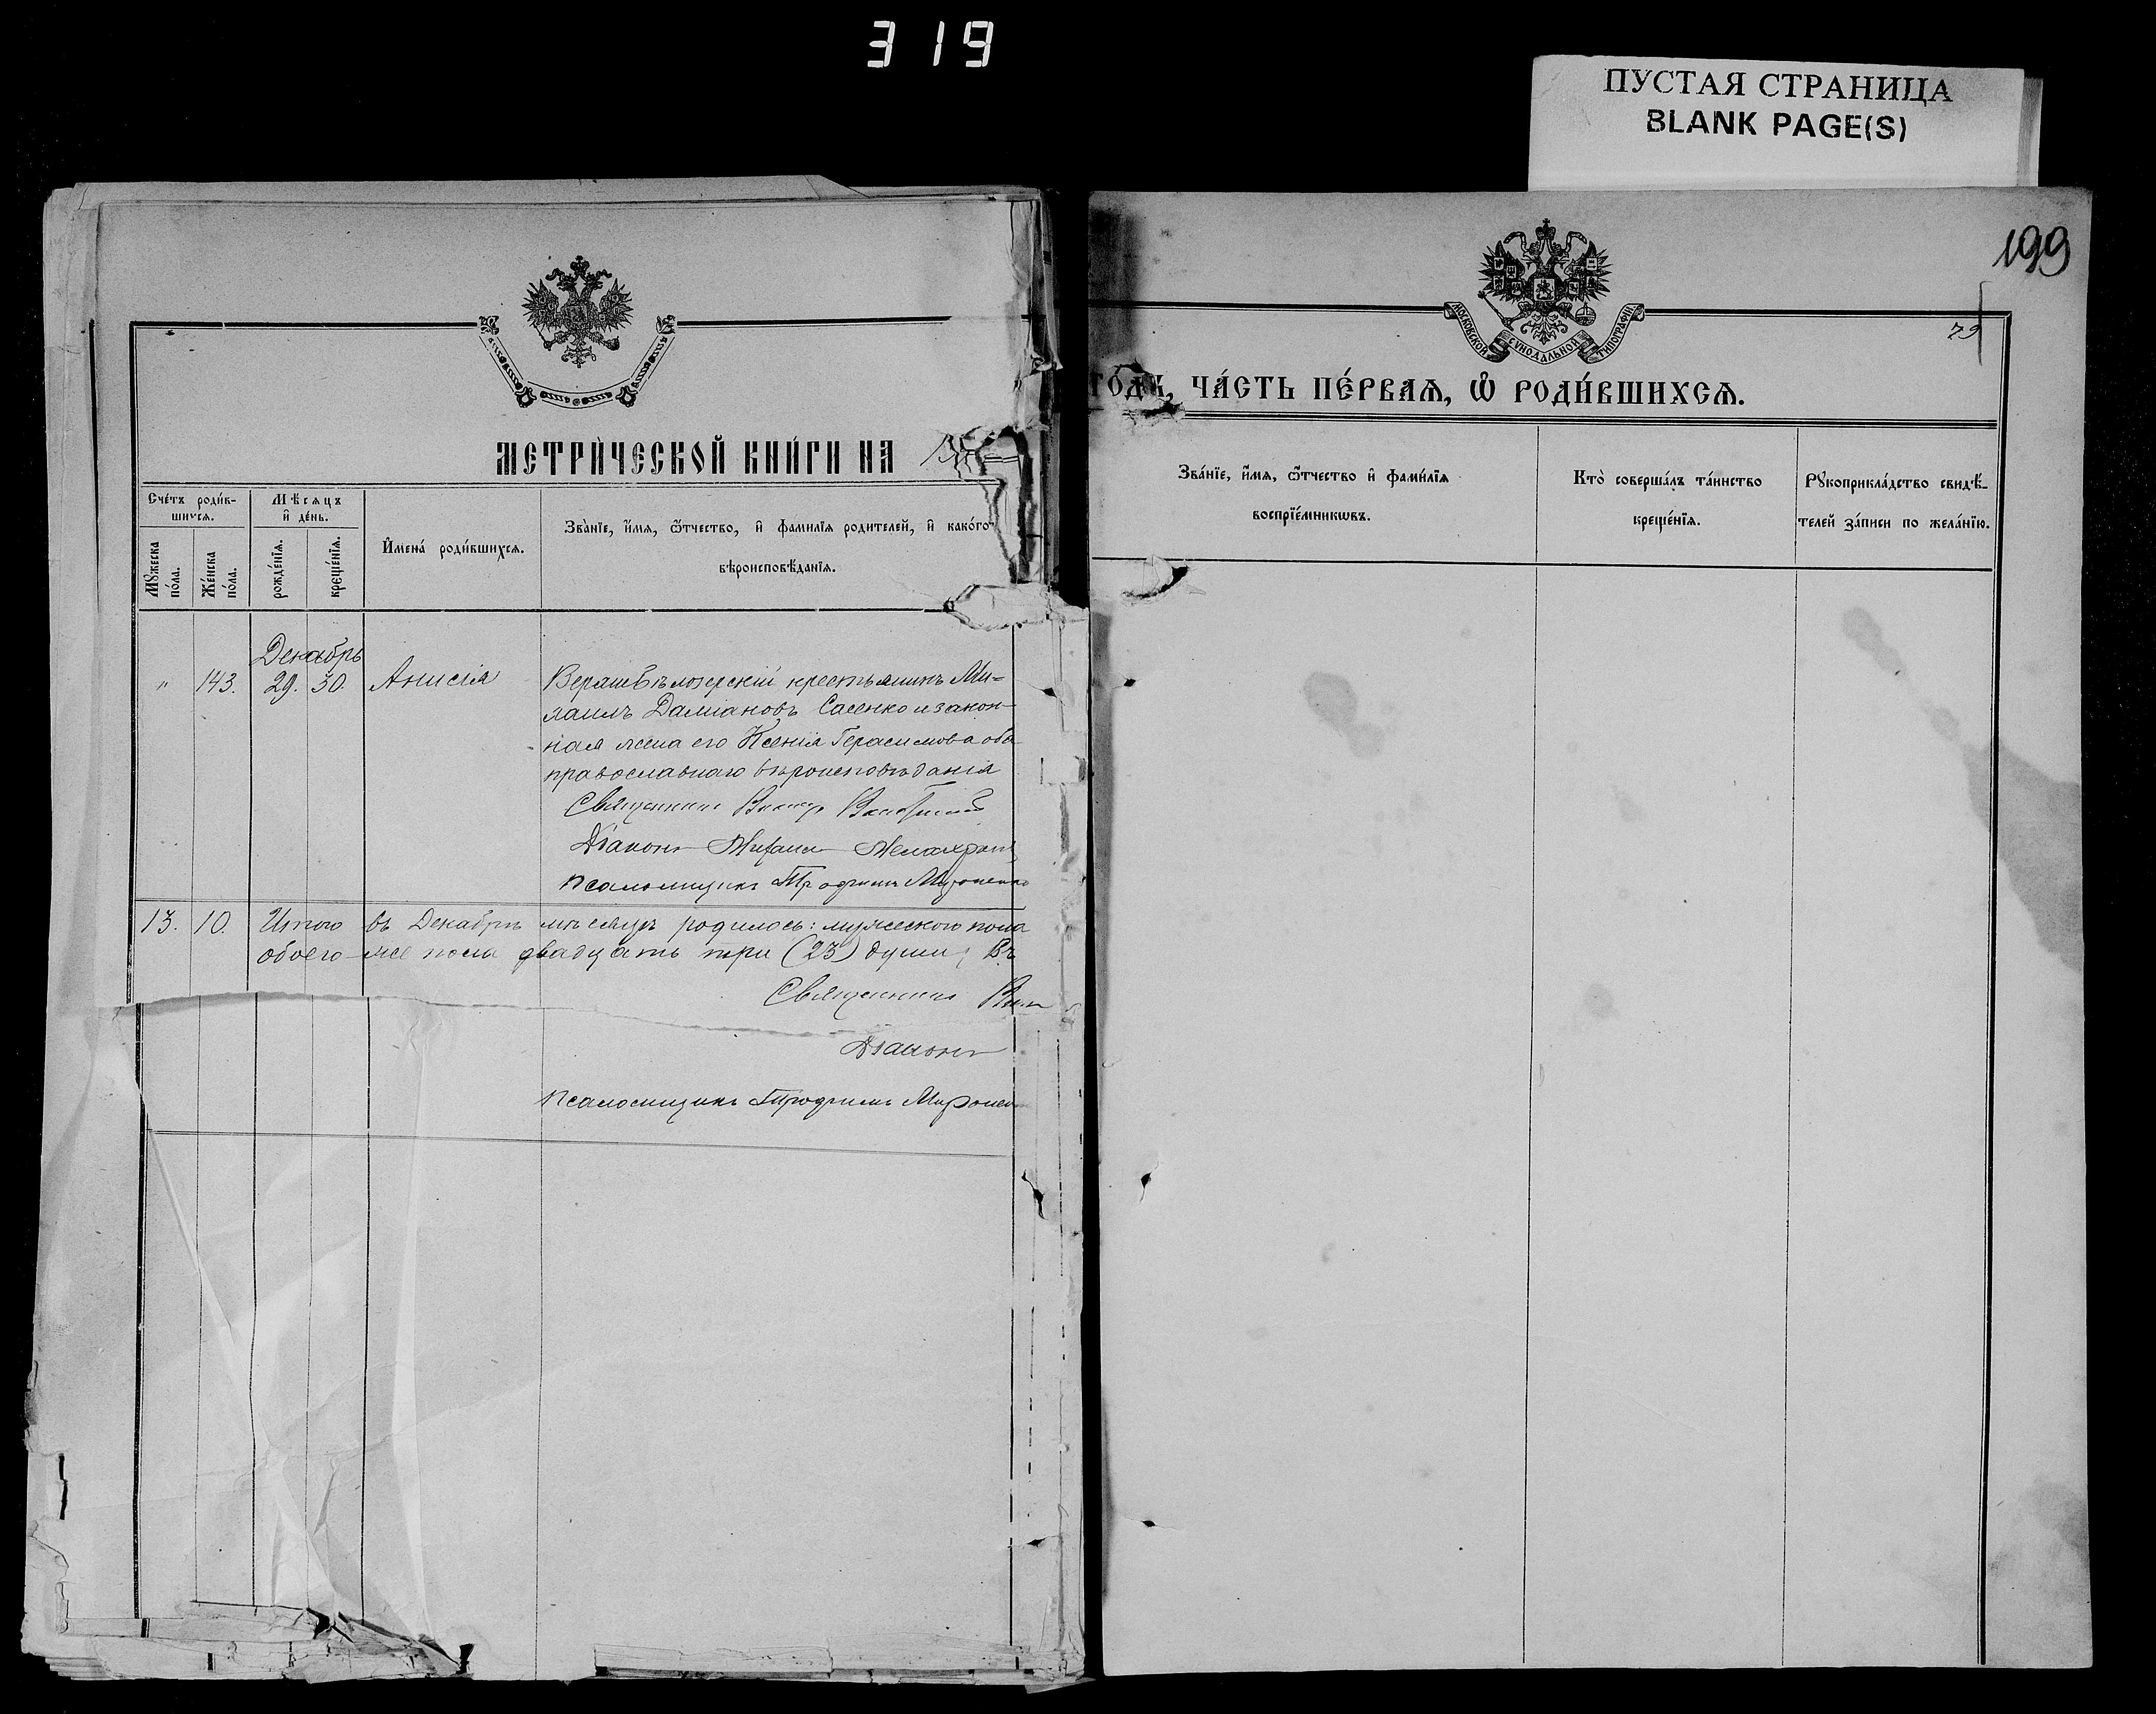 319
ПУСТАЯ СТРАНИЦА
BLANK PAGE(S)
199
79
МОСКОВСКОЙ СѴНОДАЛЬНОЙ ТИПОГРАФІИ
МЕТРИ́ЧЕСКОЙ КНИ́ГИ НА
ГО́ДЪ, ЧА́СТЬ ПЕ́РВАѦ, Ѡ҆ РОДИ́ВШИХСѦ.
Сче́тъ роди́в-
шихсѧ.
Мꙋ́жеска по́ла.
Же́нска по́ла.
Мѣ́сѧцъ
и҆ де́нь.
рожде́нїѧ.
креще́нїѧ.
И҆мена̀ роди́вшихсѧ.
Зва́нїе, и҆́мѧ, ѻ҆́тчество, и҆ фамилїѧ родителей, и҆ како́гѡ
вѣроисповѣ́данїѧ.
Зва́нїе, и҆́мѧ, ѻ҆́тчество и҆ фами́лїѧ
воспрїе́мникѡвъ.
Кто̀ соверша́лъ та́инство
креще́нїѧ.
Рꙋкоприкла́дство свидѣ́-
телей за́писи по жела́нїю.
Декабрь
" 143. 29. 30. Анисія
Верхнебѣлозерскій крестьянинъ Ми-
хаилъ Даміановъ Саенко и закон-
ная жена его Ксенія Герасимова оба
православнаго вѣроисповѣданія
Священникъ Викторъ
Діаконъ Михаилъ
Псаломщикъ Трофимъ Мироненко
13. 10. Итого въ Декабрѣ мѣсяцѣ родилось: мужескаго пола
обоего же пола двадцать три (23) души; Въ
Священникъ
Діаконъ
Псаломщикъ Трофимъ Миронен